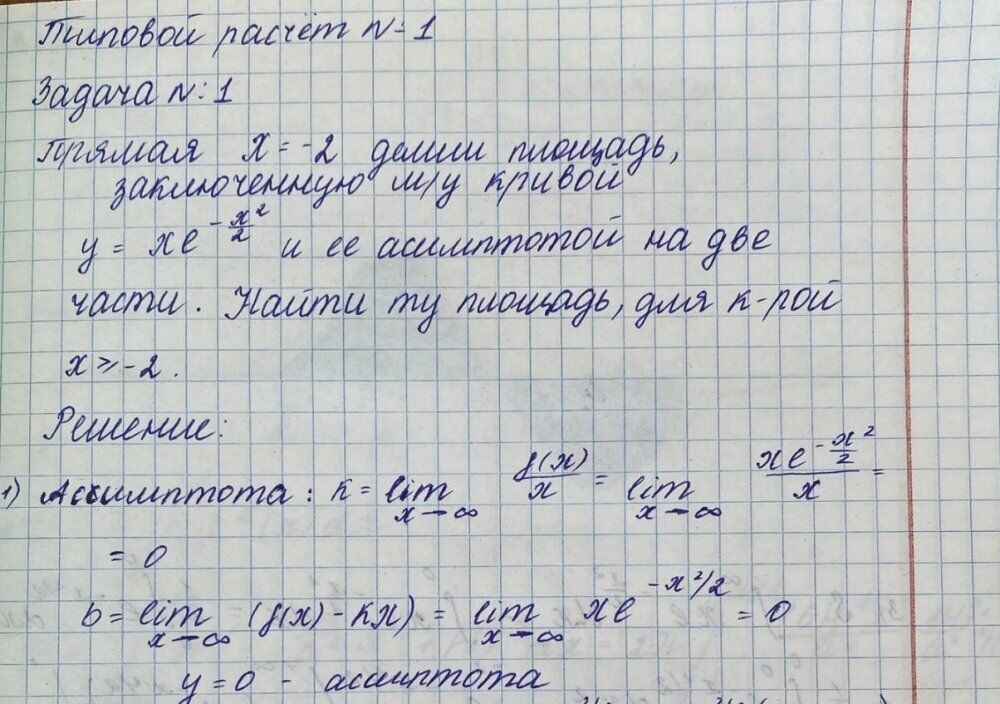 Типовой расчёт N-1
Задача N:1
Прямая x = -2 делит площадь,
заключенную м/у кривой
y = xe^{-x²/2} и ее асимптотой на две
части. Найти ту площадь, для к-рой
x ≥ -2.
Решение:
1) Ассимптота: k = lim_{x→∞} f(x)/x = lim_{x→∞} xe^{-x²/2}/x =
= 0
b = lim_{x→∞} (f(x) - kx) = lim_{x→∞} xe^{-x²/2} = 0
y = 0 - ассимптота